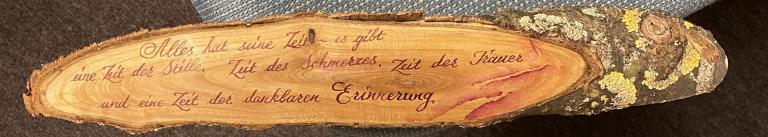 Alles hat seine Zeit – es gibt
eine Zeit der Stille, Zeit des Schmerzes, Zeit der Trauer
und eine Zeit der dankbaren Erinnerung.